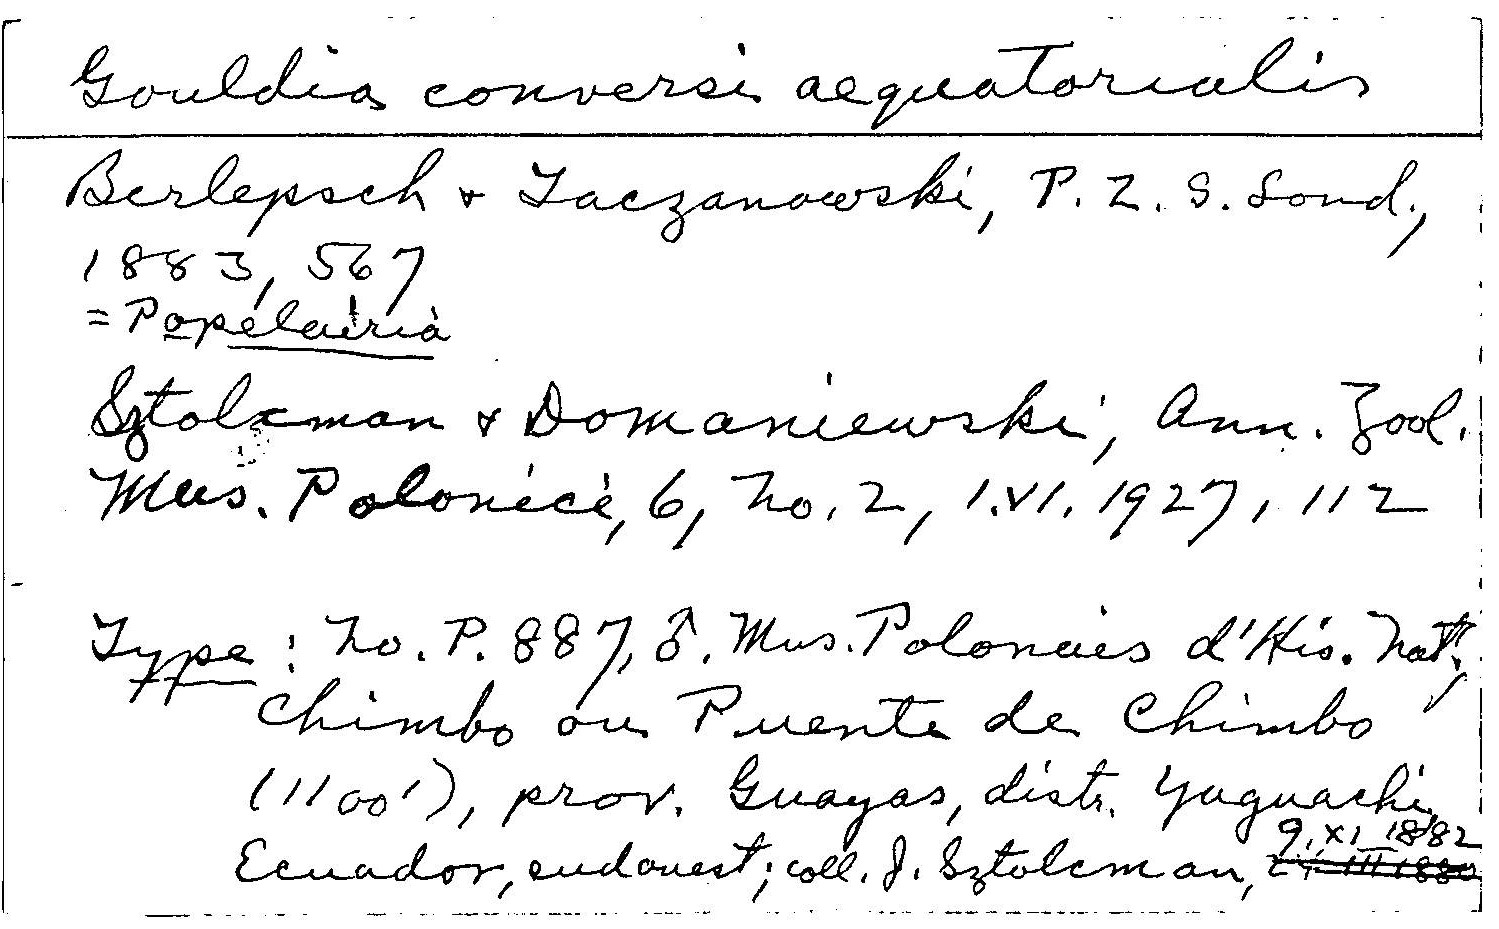 Gouldia conversi aequatorialis
Berlepsch & Taczanowski, P. Z. S. Lond.,
1883, 567
= Popelairia
Sztolcman & Domaniewski, Ann. Zool.
Mus. Polonici, 6, No. 2, 1.VI.1927, 112
Type: No. P. 887, ♂. Mus. Polonais d'His. Nat.,
Chimbo ou Puente de Chimbo
(1100'), prov. Guayas, distr. Yaguachi,
9.XI.1882
Ecuador, sudouest; coll. J. Sztolcman,